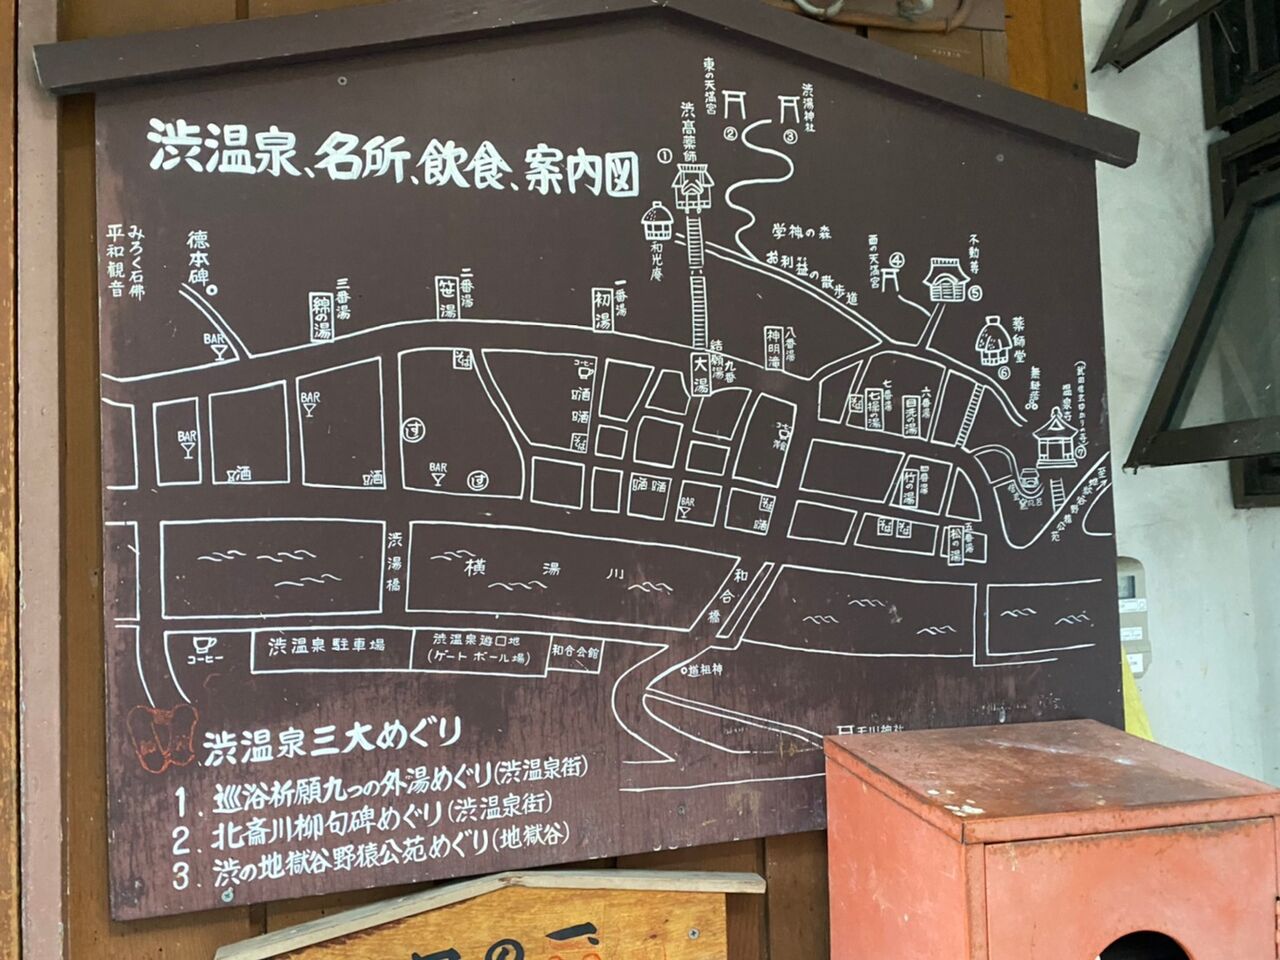 渋温泉、名所、飲食、案内図
東の天満宮
②
③
渋湯神社
渋高薬師
①
和光庵
学神の森
お利益の散歩道
西の天満宮
④
不動尊
⑤
薬師堂
⑥
無縫塔
温泉寺
⑦
平和観音
みろく石佛
徳本碑
BAR
三番湯
綿の湯
二番湯
笹の湯
一番湯
初湯
結願湯
九番
大湯
八番湯
神明滝
七番湯
七操の湯
六番湯
目洗の湯
四番湯
竹の湯
五番湯
松の湯
コーヒー
酒
酒
そば
そば
BAR
BAR
す
BAR
す
酒
酒
酒
酒
BAR
そば
酒
そば
そば
そば
至地獄谷野猿公苑
渋湯橋
横湯川
和合橋
コーヒー
渋温泉駐車場
渋温泉遊口地
(ゲートボール場)
和合会館
道祖神
天川神社
渋温泉三大めぐり
1. 巡浴祈願九つの外湯めぐり(渋温泉街)
2. 北斎川柳句碑めぐり(渋温泉街)
3. 渋の地獄谷野猿公苑めぐり(地獄谷)